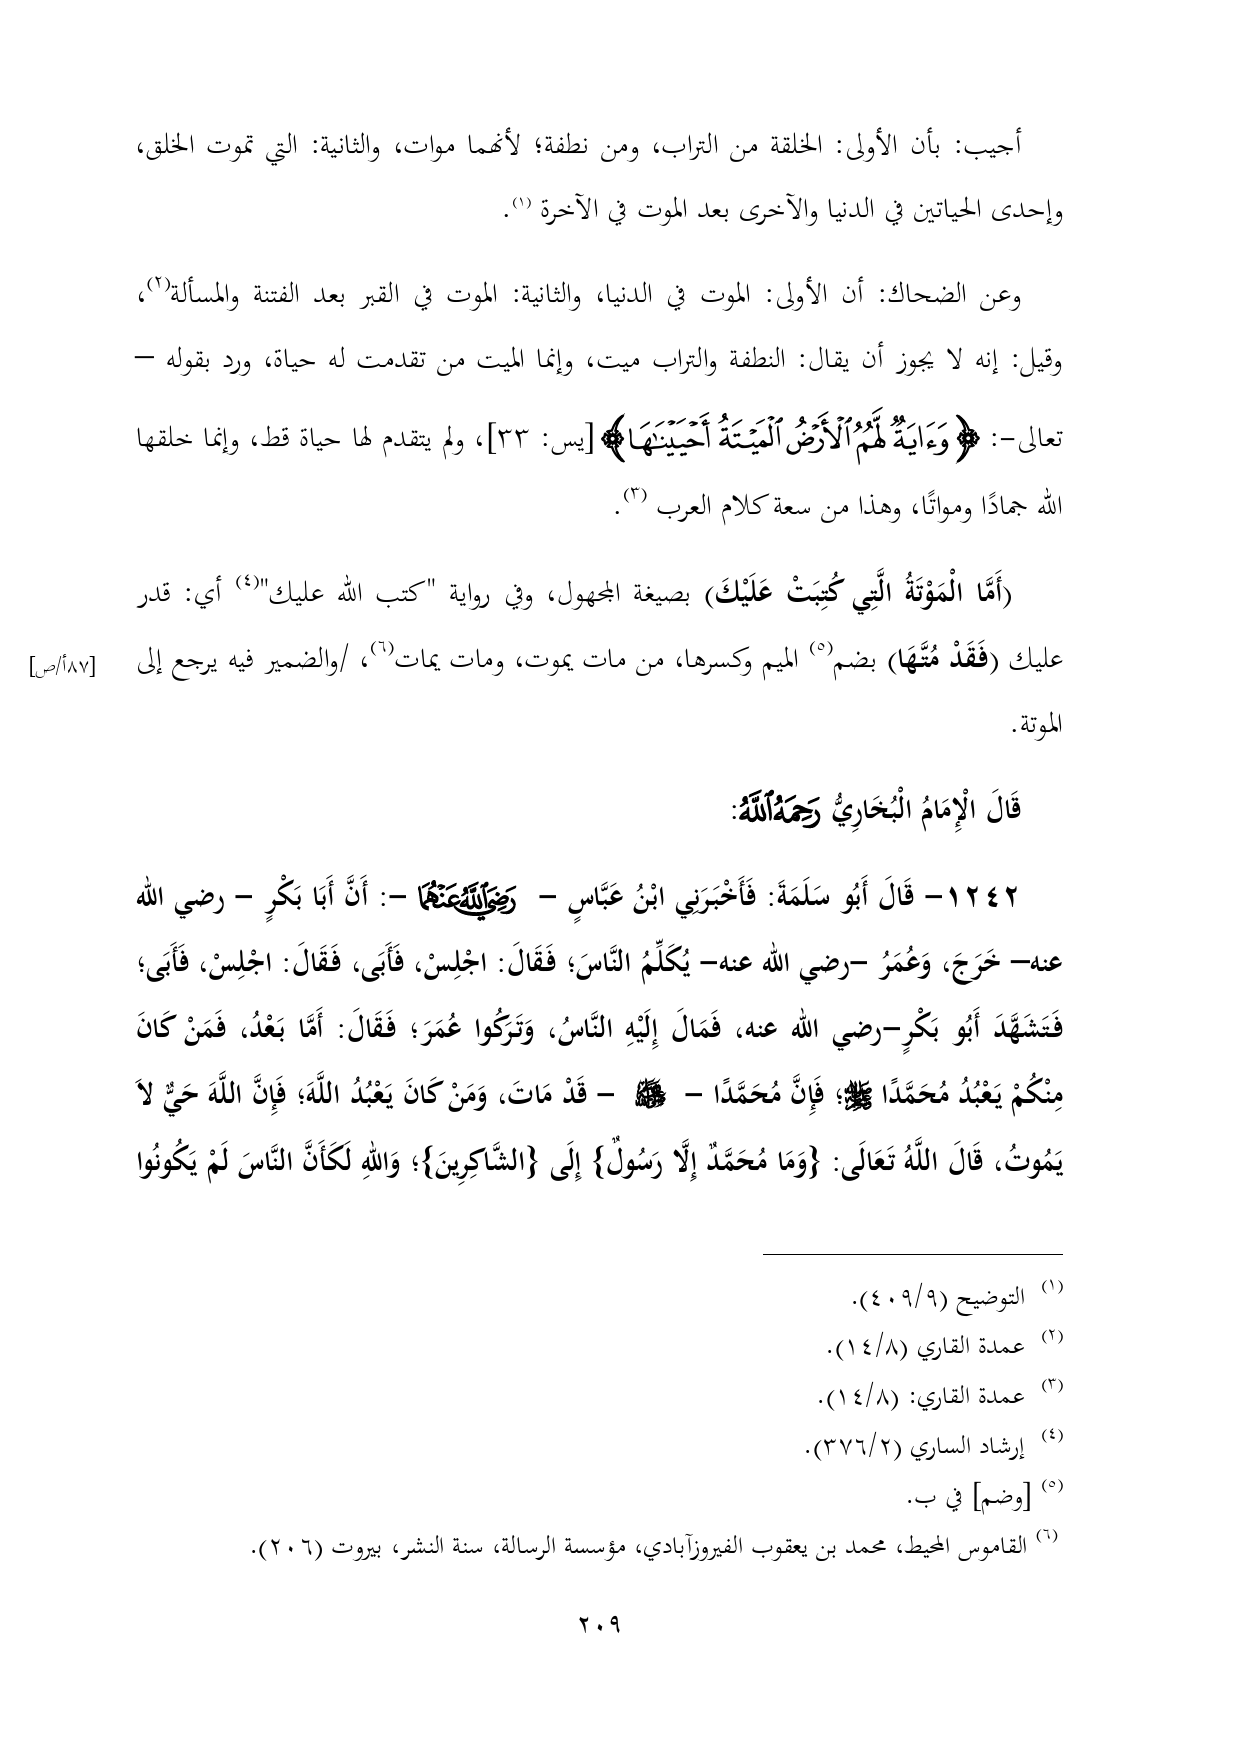 أجيب: بأن الأولى: الخلقة من التراب، ومن نطفة؛ لأنهما موات، والثانية: التي تموت الخلق،
وإحدى الحياتين في الدنيا والآخرى بعد الموت في الآخرة (١).
وعن الضحاك: أن الأولى: الموت في الدنيا، والثانية: الموت في القبر بعد الفتنة والمسألة(٢)،
وقيل: إنه لا يجوز أن يقال: النطفة والتراب ميت، وإنما الميت من تقدمت له حياة، ورد بقوله –
تعالى-: ﴿وَءَايَةٌ لَّهُمُ ٱلْأَرْضُ ٱلْمَيْتَةُ أَحْيَيْنَٰهَا﴾ [يس: ٣٣]، ولم يتقدم لها حياة قط، وإنما خلقها
الله جمادًا ومواتًا، وهذا من سعة كلام العرب (٣).
(أَمَّا الْمَوْتَةُ الَّتِي كُتِبَتْ عَلَيْكَ) بصيغة المجهول، وفي رواية "كتب الله عليك"(٤) أي: قدر
عليك (فَقَدْ مُتَّهَا) بضم(٥) الميم وكسرها، من مات يموت، ومات يمات(٦)، /والضمير فيه يرجع إلى
[٨٧أ/ص]
الموتة.
قَالَ الْإِمَامُ الْبُخَارِيُّ رَحِمَهُ ٱللَّهُ:
١٢٤٢- قَالَ أَبُو سَلَمَةَ: فَأَخْبَرَنِي ابْنُ عَبَّاسٍ – رَضِيَ ٱللَّهُ عَنْهُمَا –: أَنَّ أَبَا بَكْرٍ – رضي الله
عنه– خَرَجَ، وَعُمَرُ –رضي الله عنه– يُكَلِّمُ النَّاسَ؛ فَقَالَ: اجْلِسْ، فَأَبَى، فَقَالَ: اجْلِسْ، فَأَبَى؛
فَتَشَهَّدَ أَبُو بَكْرٍ–رضي الله عنه، فَمَالَ إِلَيْهِ النَّاسُ، وَتَرَكُوا عُمَرَ؛ فَقَالَ: أَمَّا بَعْدُ، فَمَنْ كَانَ
مِنْكُمْ يَعْبُدُ مُحَمَّدًا ﷺ؛ فَإِنَّ مُحَمَّدًا – ﷺ – قَدْ مَاتَ، وَمَنْ كَانَ يَعْبُدُ اللَّهَ؛ فَإِنَّ اللَّهَ حَيٌّ لاَ
يَمُوتُ، قَالَ اللَّهُ تَعَالَى: {وَمَا مُحَمَّدٌ إِلَّا رَسُولٌ} إِلَى {الشَّاكِرِينَ}؛ وَاللهِ لَكَأَنَّ النَّاسَ لَمْ يَكُونُوا
(١) التوضيح (٤٠٩/٩).
(٢) عمدة القاري (١٤/٨).
(٣) عمدة القاري: (١٤/٨).
(٤) إرشاد الساري (٣٧٦/٢).
(٥) [وضم] في ب.
(٦) القاموس المحيط، محمد بن يعقوب الفيروزآبادي، مؤسسة الرسالة، سنة النشر، بيروت (٢٠٦).
٢٠٩